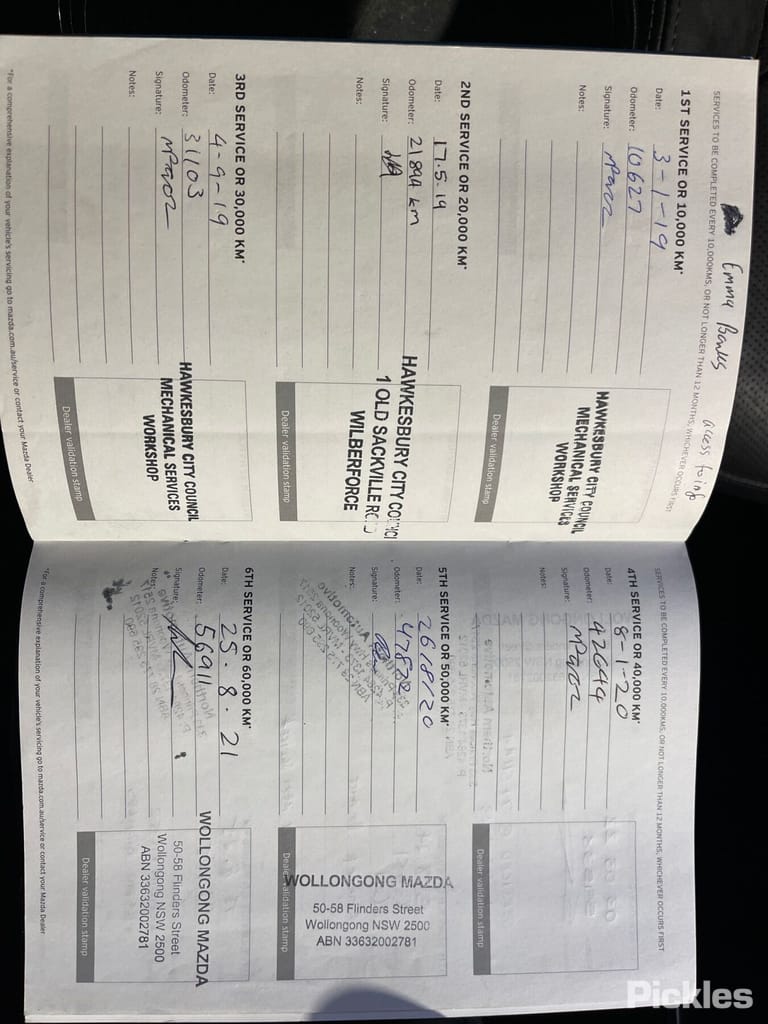 Emma Banks
access to info
SERVICES TO BE COMPLETED EVERY 10,000KMS, OR NOT LONGER THAN 12 MONTHS, WHICHEVER OCCURS FIRST
1ST SERVICE OR 10,000 KM*
Date: 3-1-19
Odometer: 10627
Signature:
Notes:
HAWKESBURY CITY COUNCIL
MECHANICAL SERVICES
WORKSHOP
Dealer validation stamp
2ND SERVICE OR 20,000 KM*
Date: 17.5.19
Odometer: 21894 km
Signature:
Notes:
HAWKESBURY CITY COUNCI
1 OLD SACKVILLE RO D
WILBERFORCE
Dealer validation stamp
3RD SERVICE OR 30,000 KM*
Date: 4-9-19
Odometer: 31103
Signature:
Notes:
HAWKESBURY CITY COUNCIL
MECHANICAL SERVICES
WORKSHOP
Dealer validation stamp
*For a comprehensive explanation of your vehicle's servicing go to mazda.com.au/service or contact your Mazda Dealer
SERVICES TO BE COMPLETED EVERY 10,000KMS, OR NOT LONGER THAN 12 MONTHS, WHICHEVER OCCURS FIRST
4TH SERVICE OR 40,000 KM*
Date: 8-1-20
Odometer: 42644
Signature:
Notes:
Dealer validation stamp
5TH SERVICE OR 50,000 KM*
Date: 26/8/20
Odometer: 47872
Signature:
Notes:
WOLLONGONG MAZDA
50-58 Flinders Street
Wollongong NSW 2500
ABN 33632002781
Dealer validation stamp
6TH SERVICE OR 60,000 KM*
Date: 25.8.21
Odometer: 56911
Signature:
Notes:
WOLLONGONG MAZDA
50-58 Flinders Street
Wollongong NSW 2500
ABN 33632002781
Dealer validation stamp
*For a comprehensive explanation of your vehicle's servicing go to mazda.com.au/service or contact your Mazda Dealer
Pickles